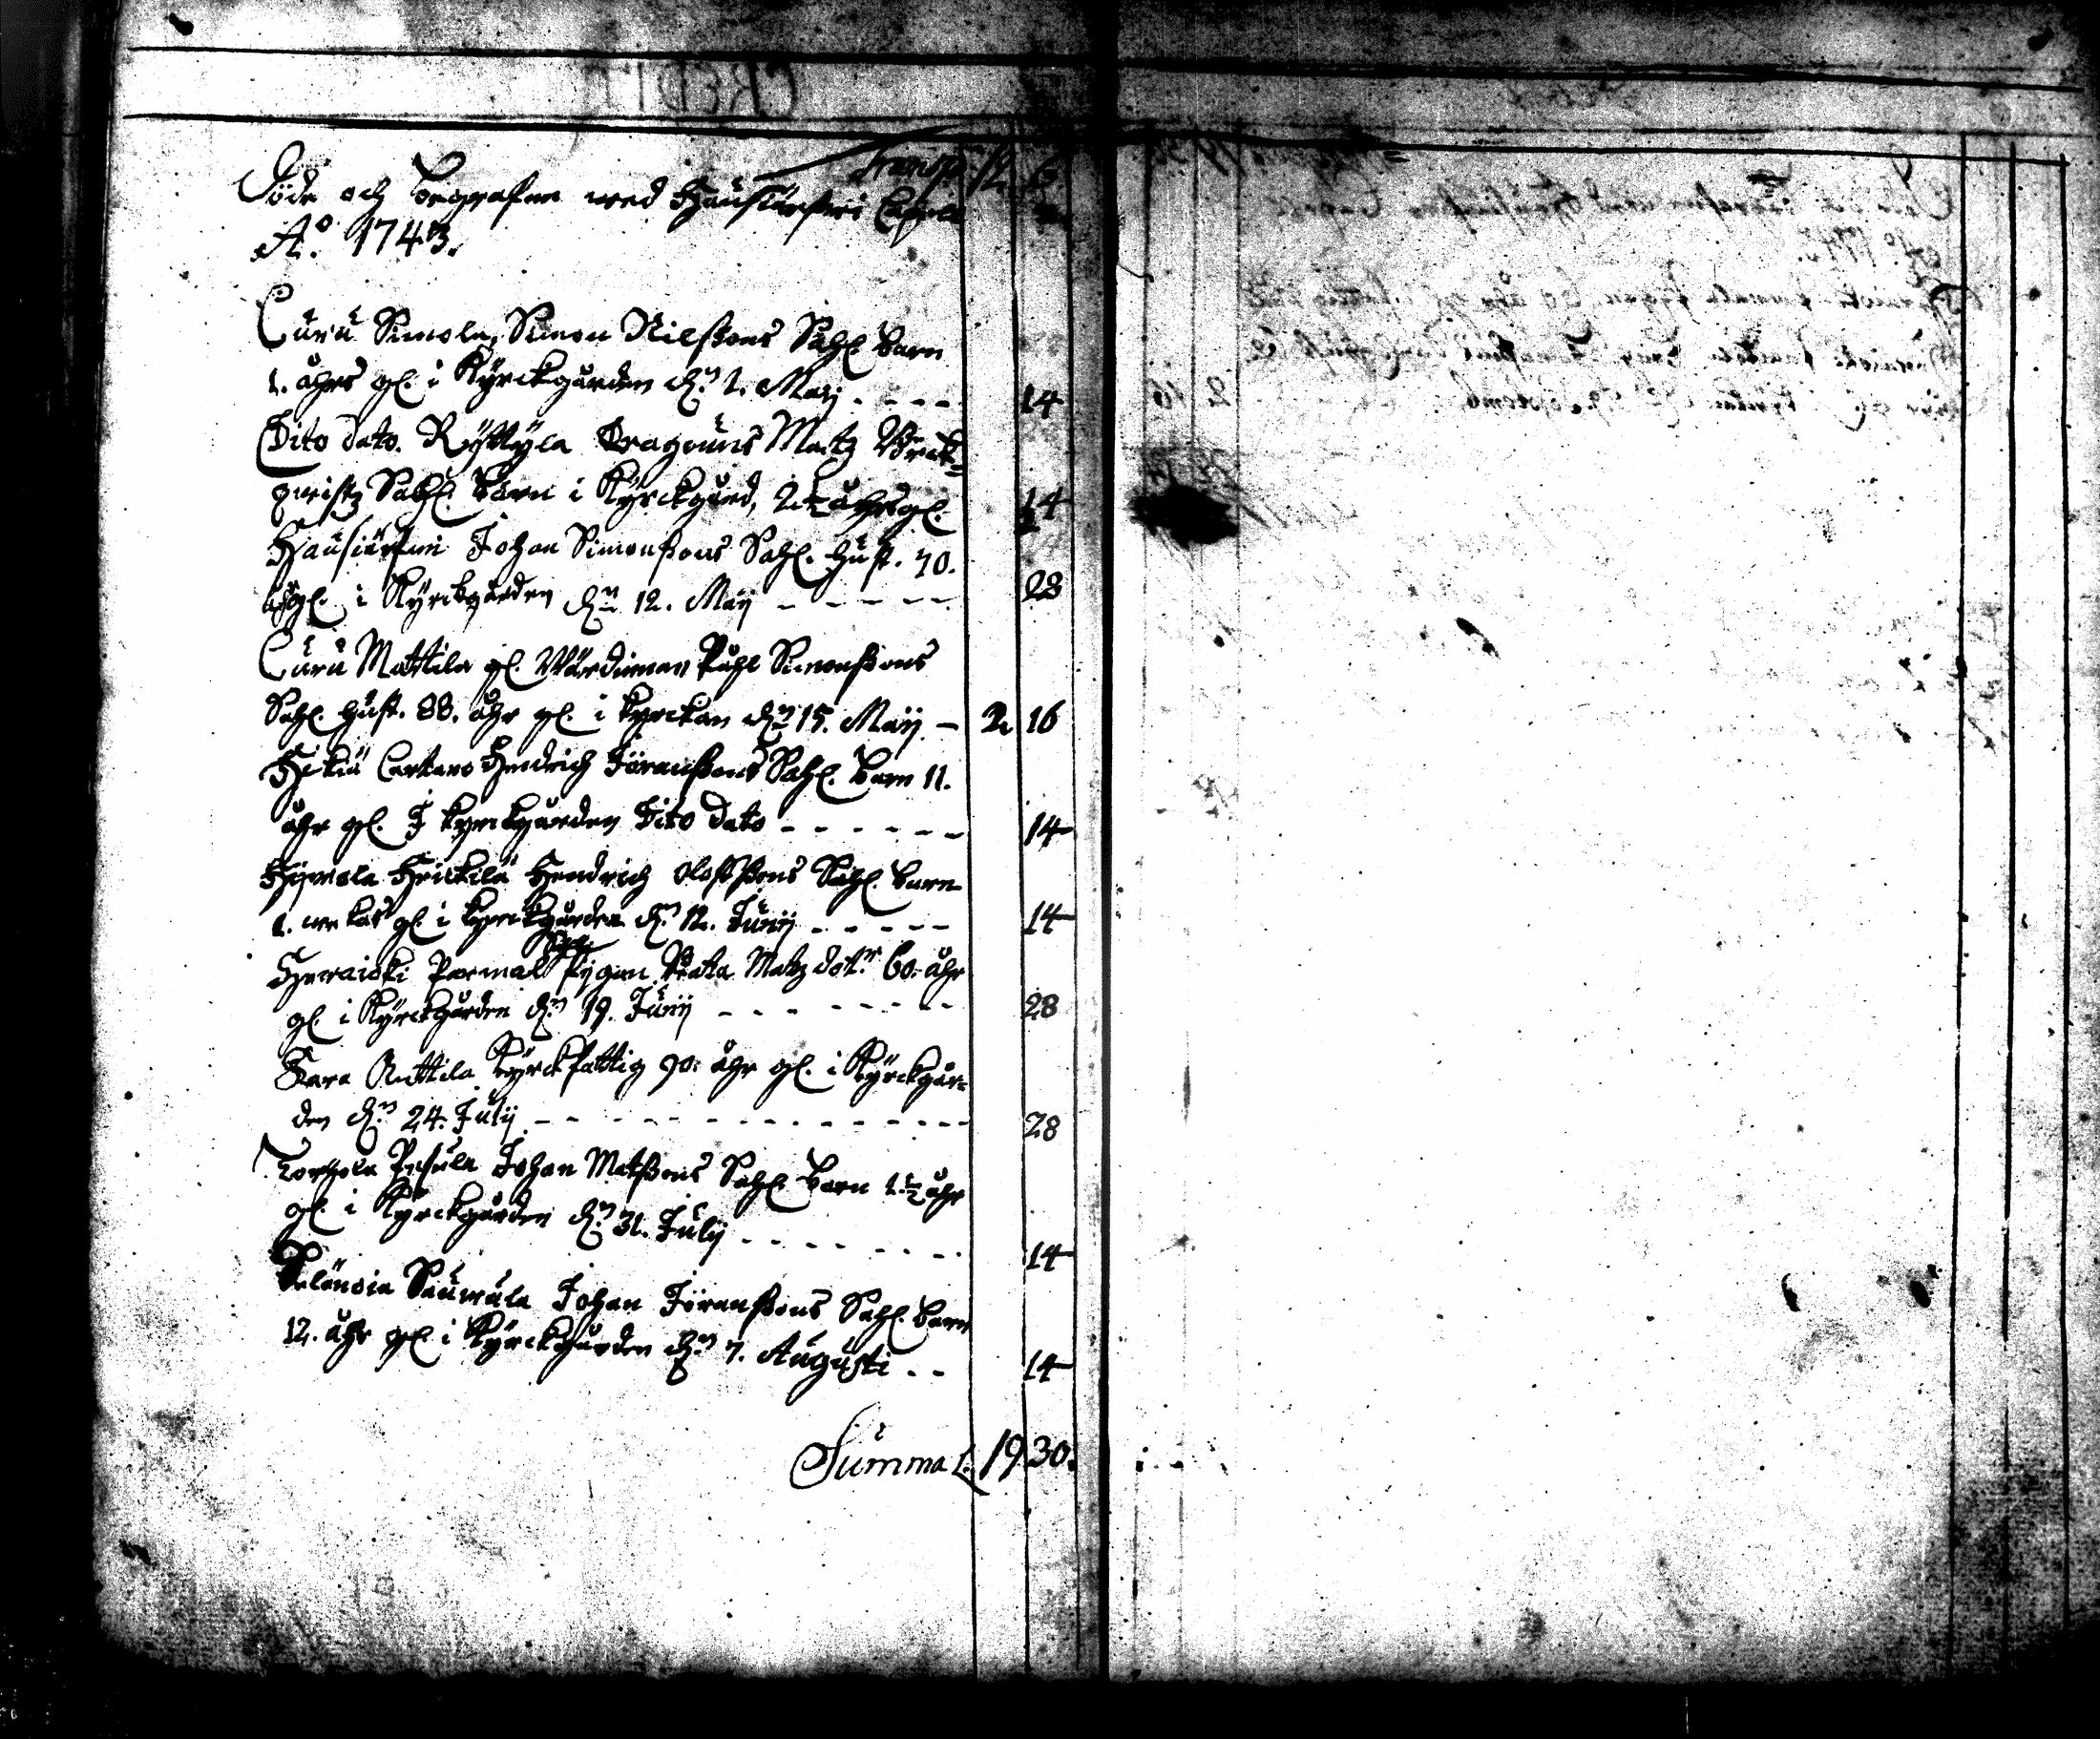 Transp. 12. 6.
Döde och begrafne wed Haussiärfwi Capell
A:o 1743.
Curu Simola, Simon Nilßons Sahl. barn
1. åhrs gl. i Kyrckgården d:n 1. Maij - - - - 14
Dito dato. Ryttylä Dragouns Matz
Sahl. barn i Kyrckgård, 2 1/2 åhrs gl. 14
Hausiärfwi Johan Simonßons Sahl. hust. 70.
åhr gl. i Kyrckgården d:n 12. Maij - - - - - 28
Curu Mattila gl. Wärdinnan Påhl Simonßons
Sahl. hust. 88. åhr gl. i kyrckan d:n 15. Maij - 2. 16
Hikiä Hendrich Jöranßons Sahl. barn 11.
åhr gl. I kyrckgården Dito dato - - - - - - 14
Hyrola Heickilä Hendrich Olofßons Sahl. barn
1. wekas gl. i kyrckgården d:n 12. Junij - - - - - 14
pygan Beata Matz dot:r 60. åhr
gl. i Kyrckgården d:n 19. Junij - - - - - - - - 28
Kara Anttila kyrckfattig 90. åhr gl. i Kyrckgår=
den d:n 24. Julij - - - - - - - - - - - - - - - 28
Torhola Pessula Johan Matßons Sahl. barn 1 1/2 åhr
gl. i Kyrckgården d:n 31. Julij - - - - - - - - 14
Selänoia Saumala Johan Jöranßons Sahl. barn
12. åhr gl. i Kyrckgården d:n 7. Augusti - - 14
Summa 1. 19 30.